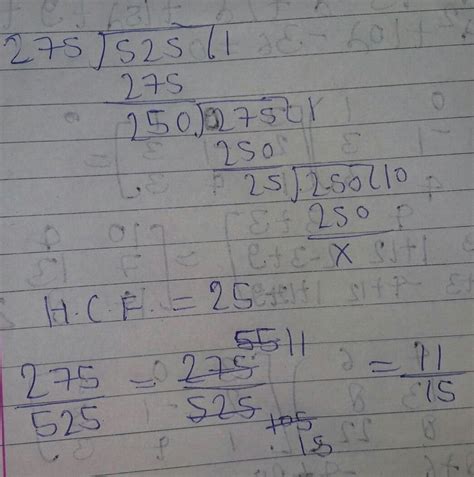 275)525(1
275
250)275(1
250
25)250(10
250
x
H.C.F. = 25
275/525 = 275/525 55 11 105 15 = 11/15